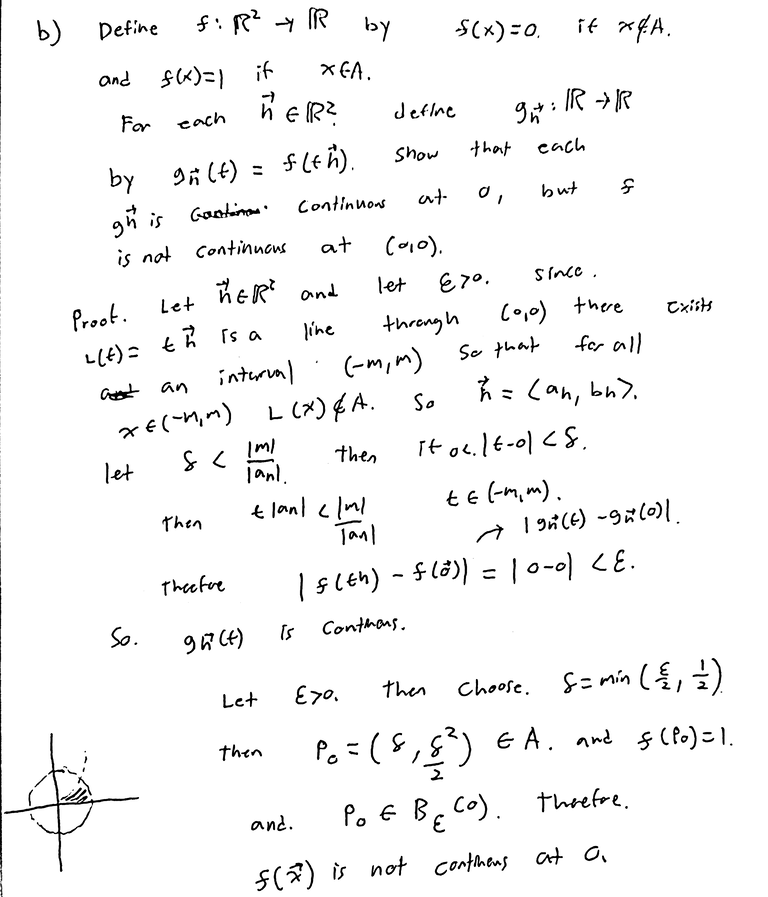 b) Define f: ℝ² → ℝ by f(x)=0. if x∉A.
and f(x)=1 if x∈A.
For each h⃗ ∈ ℝ². define g_h⃗ : ℝ → ℝ
by g_h⃗(t) = f(t h⃗). Show that each
g_h⃗ is continuous at 0, but f
is not continuous at (0,0).
Proof. Let h⃗∈ℝ² and let ε>0. since.
L(t) = t h⃗ is a line through (0,0) there exists
an interval (-m,m) so that for all
x∈(-m,m) L(x)∉A. So h⃗ = ⟨an, bn⟩.
let δ < |m|/|an|. then if 0<.|t-0| < δ.
Then t|an| < |m|/|an| t ∈ (-m,m).
→ |g_h⃗(t) - g_h⃗(0)|.
Therfore |f(th) - f(0⃗)| = |0-0| < ε.
So. g_h⃗(t) is conthous.
Let ε>0. then choose. δ = min(ε/2, 1/2)
then P₀ = (δ, δ²/2) ∈ A. and f(P₀)=1.
and. P₀ ∈ B_ε(0). Therefore.
f(x⃗) is not conthous at 0.